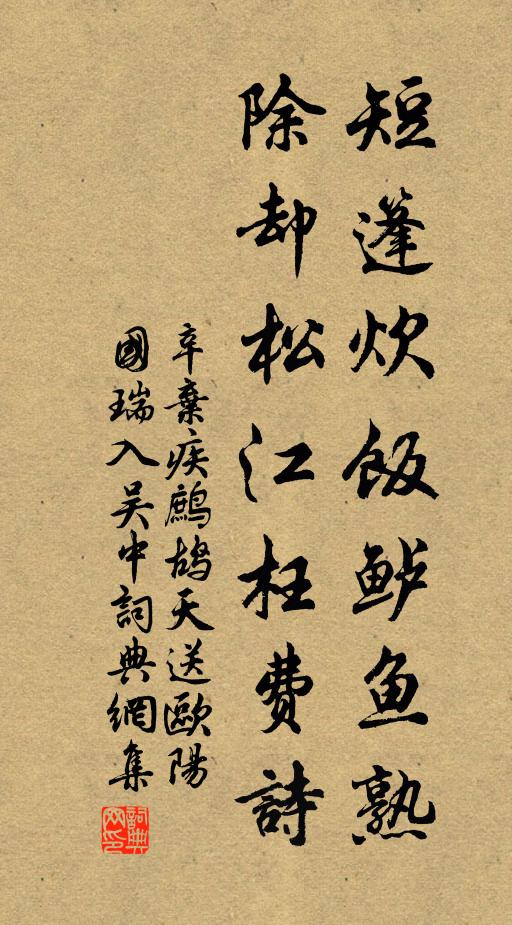 短篷炊饭鲈鱼熟
除却松江枉费詩
辛棄疾鷓鸪天送歐陽
國瑞入吴中詞典網集
詞典网印